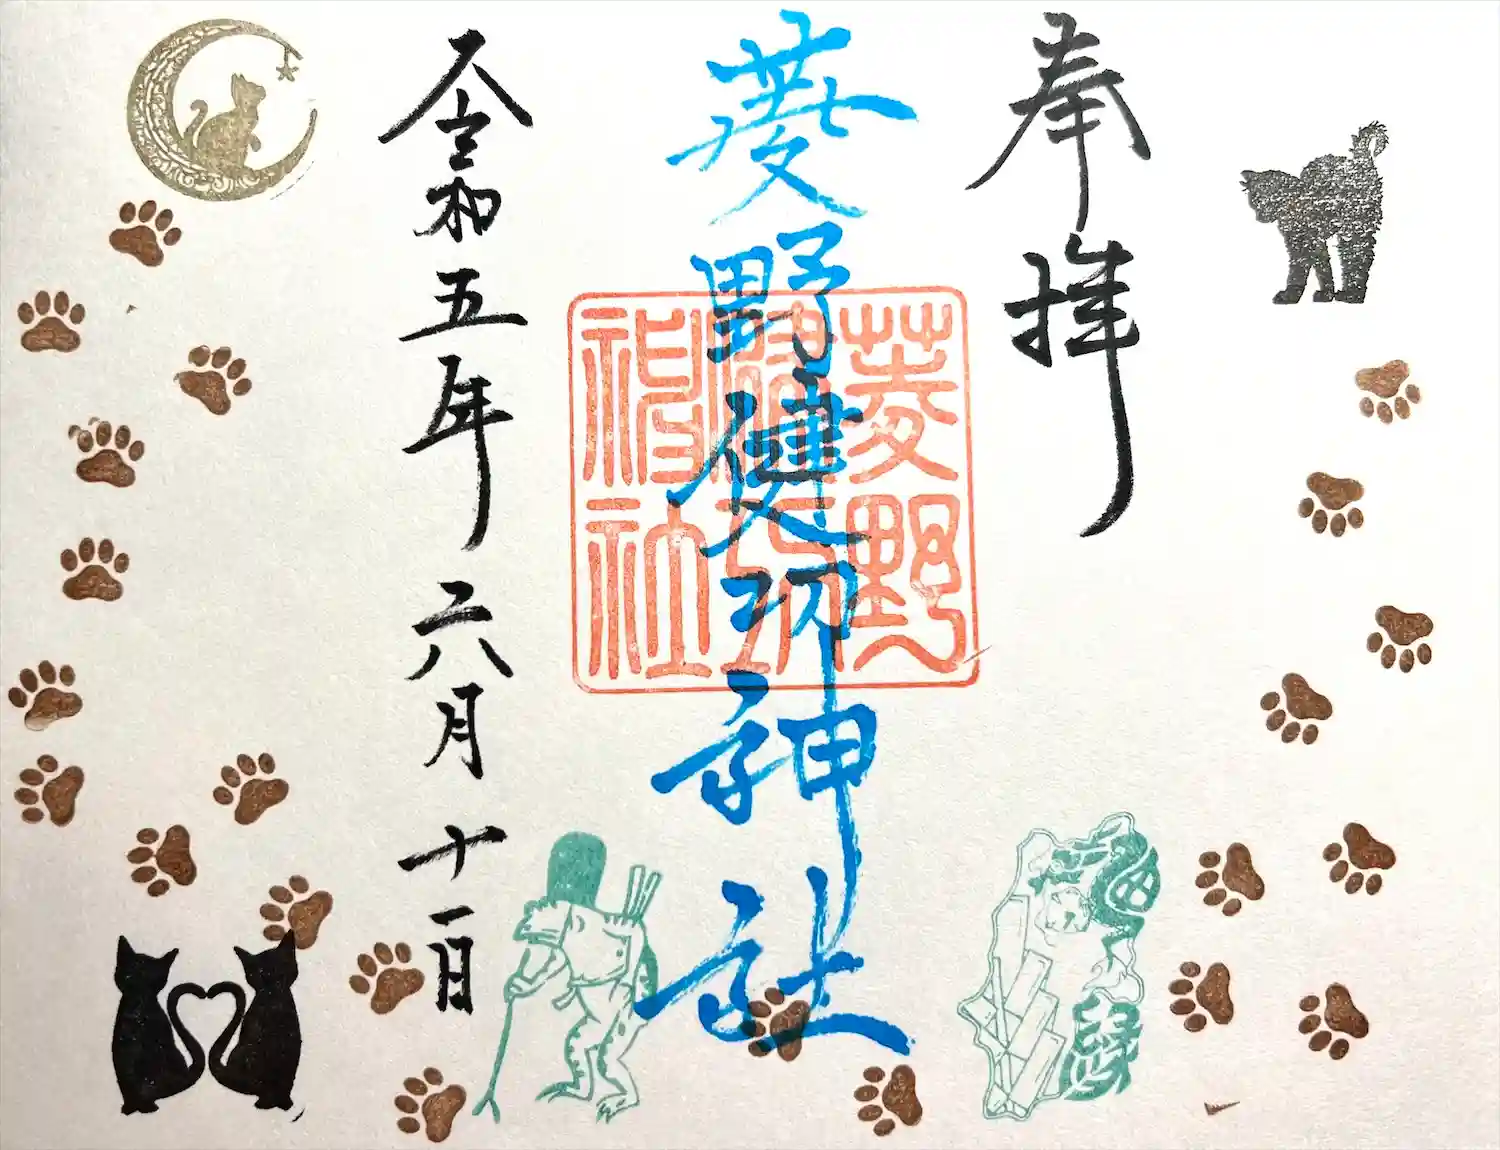 奉拝
菱野健功神社
菱野
健功
神社
令和五年六月十一日